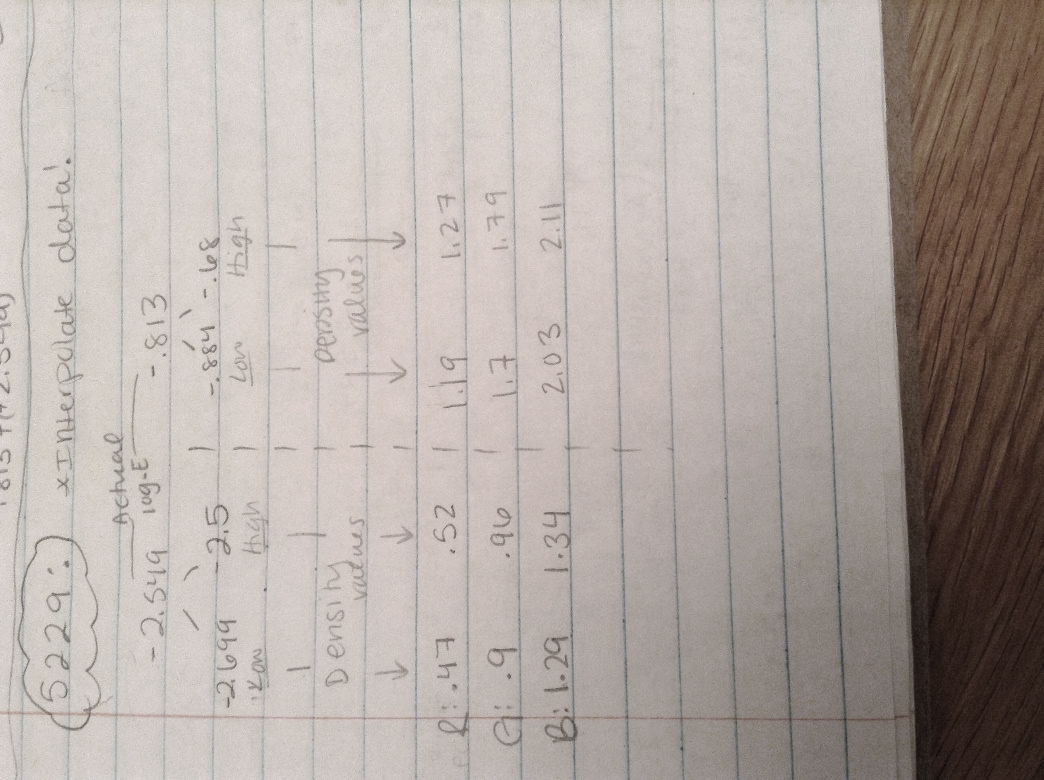 .813 + (+2.549)
5229: x Interpolate data!
Actual
log-E
-2.549 -.813
-2.699 -2.5 -.884 -.68
Low High Low High
Density values Density values
R: .47 .52 1.19 1.27
G: .9 .96 1.7 1.79
B: 1.29 1.34 2.03 2.11